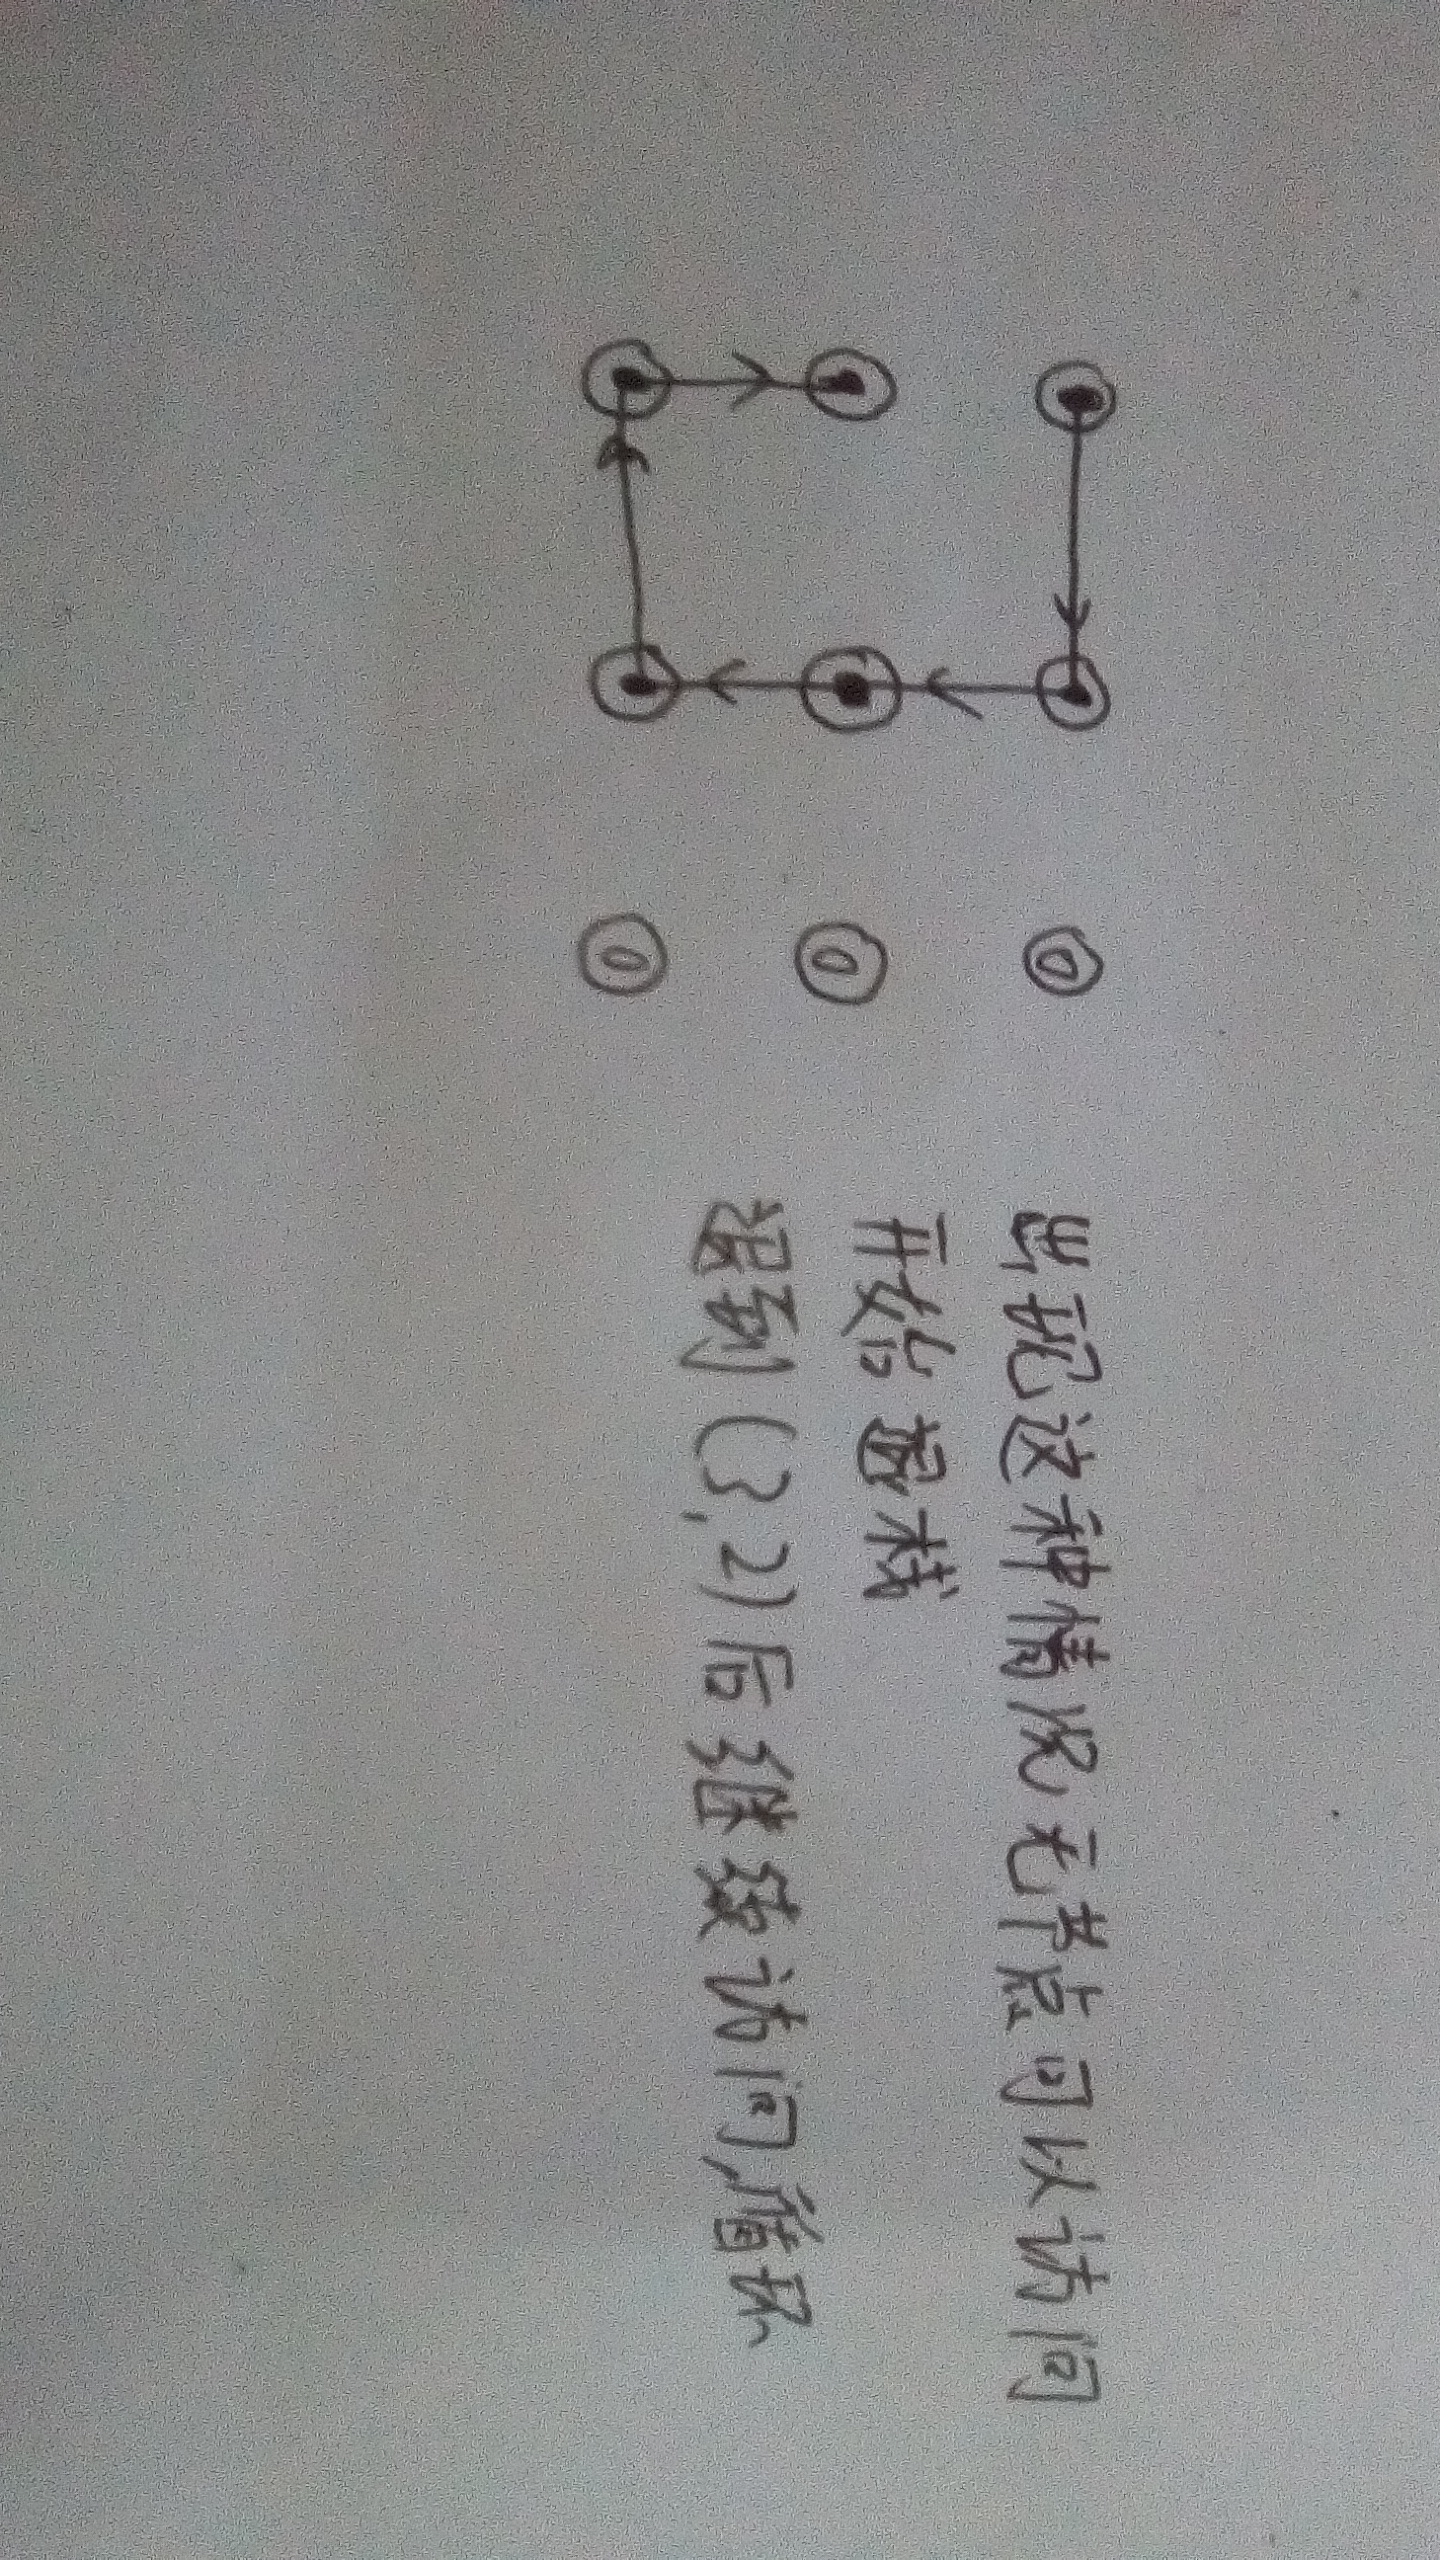 0
0
0
出现这种情况无节点可以访问
开始退栈
退到(3,2)后继续访问循环